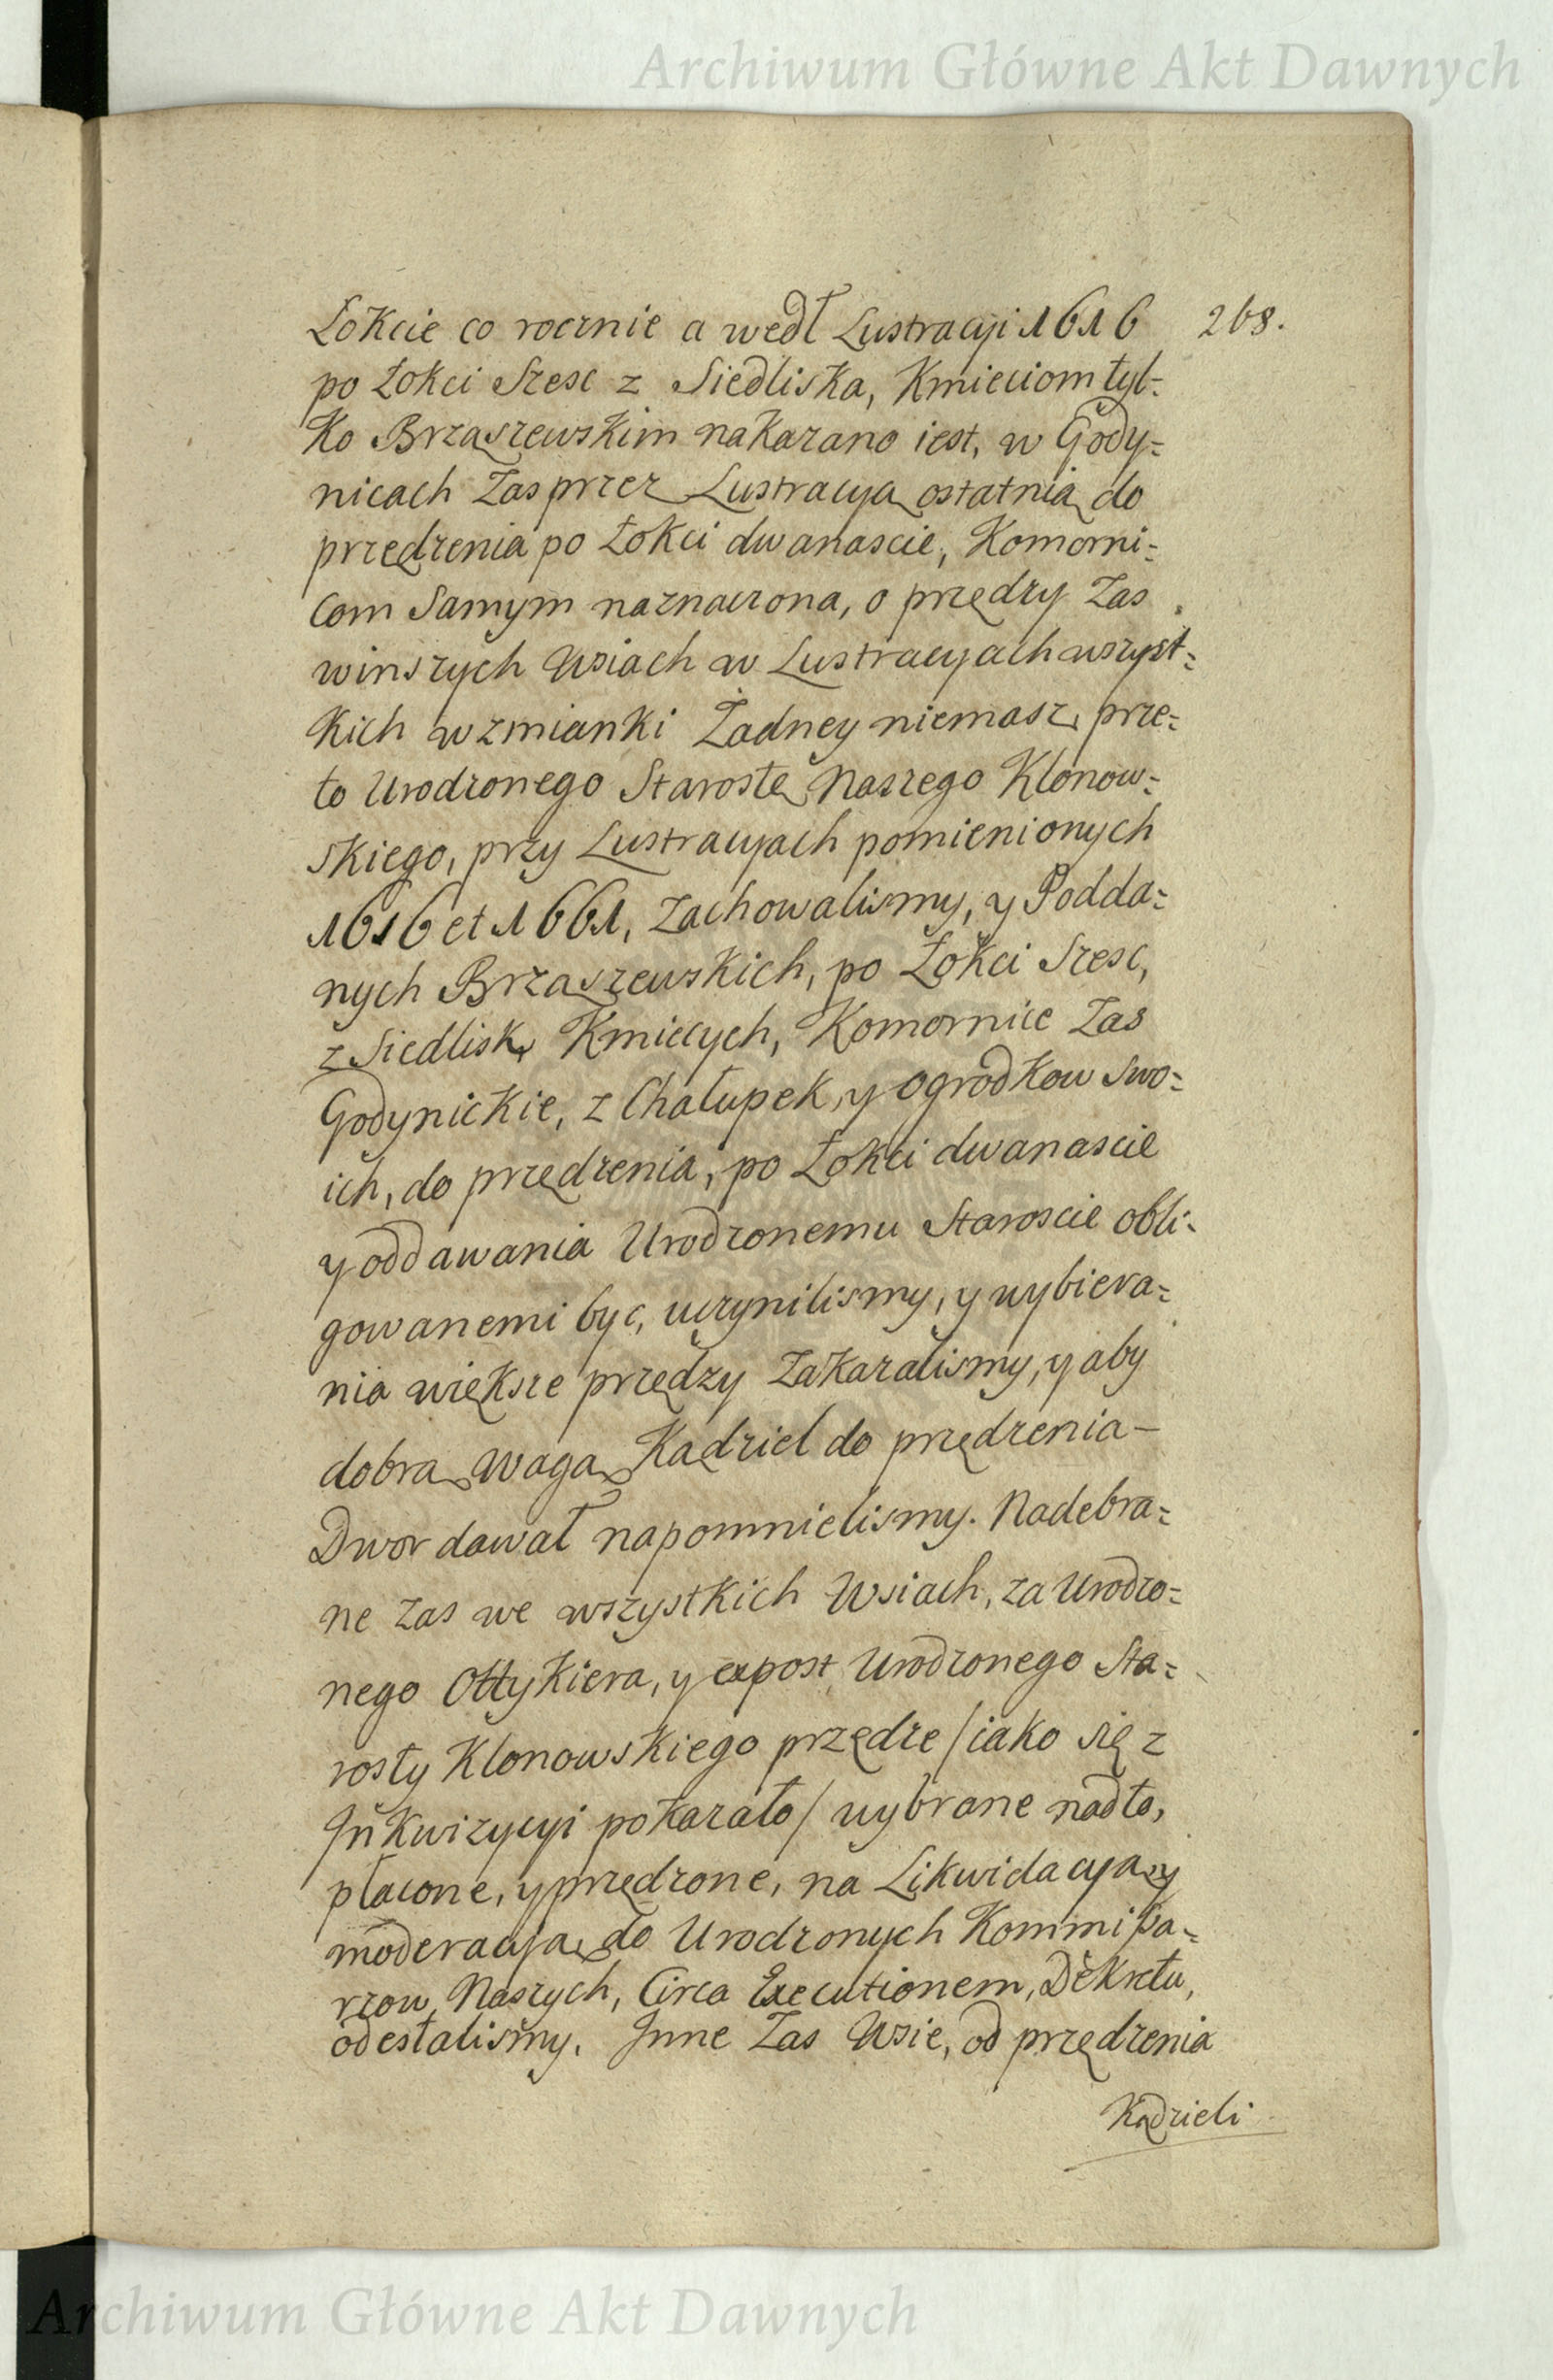 Archiwum Główne Akt Dawnych
Łokcie co rocznie a wedł Lustracyi 1616 268.
po Łokci Szesc z Siedliska, Kmieciom tyl=
ko Brzaszewskim nakazano iest, w Gody=
nicach Zas przez Lustracyą ostatnią do
przędzenia po Łokci dwanascie, Komorni=
com Samym naznaczona, o przędzy Zas
w inszych Wsiach w Lustracyach wszyst=
kich wzmianki Żadney niemasz, prze=
to Urodzonego Starostę Naszego Klonow=
skiego, przy Lustracyach pomienionych
1616 et 1661, Zachowalismy, y Podda=
nych Brzaszewskich, po Łokci Szesc,
z Siedlisk, Kmiecych, Komornice Zas
Godynickie, z Chałupek, y Ogrodkow swo=
ich, do przędzenia, po Łokci dwanascie
y oddawania Urodzonemu Staroscie obli=
gowanemi byc, uczynilismy, y wybiera=
nia większe przędzy Zakazalismy, y aby
dobrą Wagą Kądziel do przędzenia –
Dwor dawał napomnielismy. Nadebra=
ne zas we wszystkich Wsiach, za Urodzo=
nego Ottykiera, y expost Urodzonego Sta=
rosty Klonowskiego przędze / iako się z
Inkwizycyi pokazało / wybrane nadto,
płacone, y przędzone, na Likwidacyą y
moderacyą do Urodzonych Kommißa=
rzow Naszych, Circa Executionem, Dekretu,
odesłalismy. Inne Zas Wsie, od przędzenia
Kądzieli
Archiwum Główne Akt Dawnych